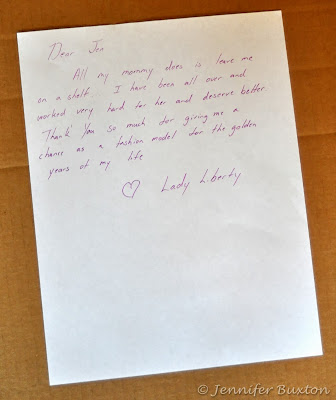 Dear Jen
All my mommy does is leave me
on a shelf. I have been all over and
worked very hard for her and deserve better.
Thank You so much for giving me a
chance as a fashion model for the golden
years of my life
♡ Lady Liberty
© Jennifer Buxton